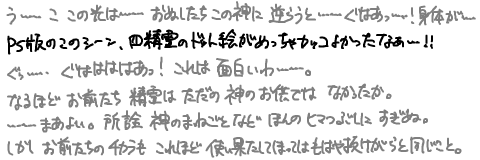 うー… こ この光は…… おぬしたち この神に 逆らうと……ぐはあっ…!身体が…
PS版のこのシーン、四精霊のドット絵がめっちゃカッコよかったなぁー!!
ぐぅ…… ぐはははははあっ! これは 面白いわ……。
なるほど お前たち 精霊は ただの 神の お供では なかったか。
……まあよい。所詮 神のまねごとなど ほんの ヒマつぶしに すぎぬ。
しかし お前たちの チカラも これほど 使い果たしてしまっては もはや 抜けがらと 同じこと。